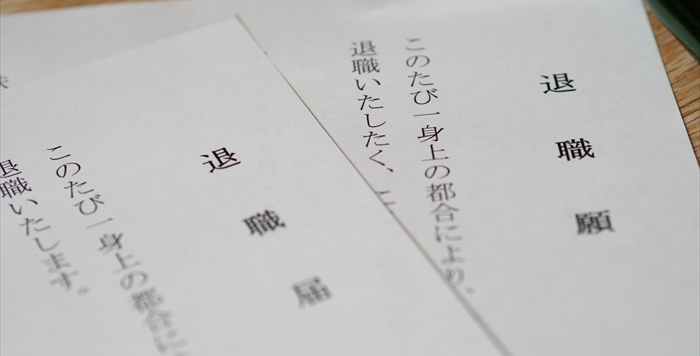 退職願
このたび一身上の都合により、
退職いたしたく、こ
退職届
このたび一身上の都合に
退職いたします。